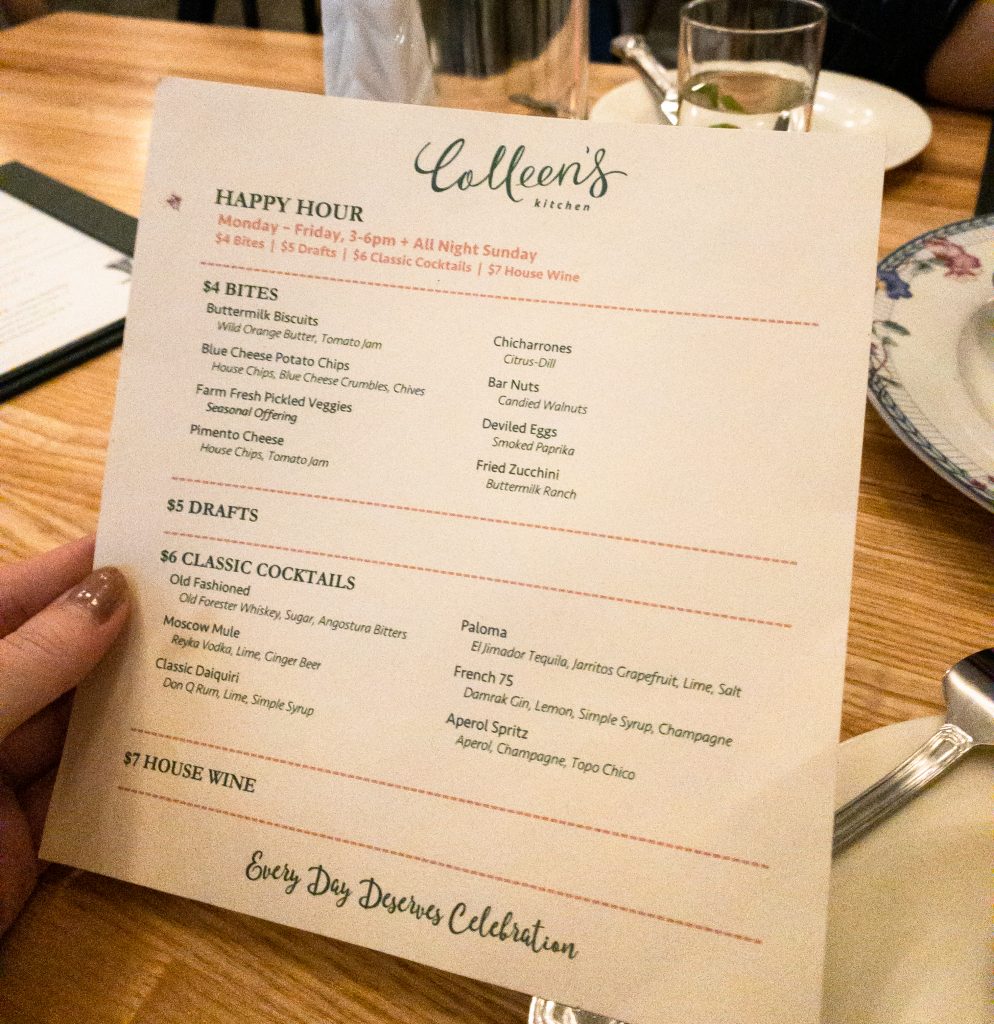 Colleen's
kitchen
HAPPY HOUR
Monday – Friday, 3-6pm + All Night Sunday
$4 Bites | $5 Drafts | $6 Classic Cocktails | $7 House Wine
$4 BITES
Buttermilk Biscuits
Wild Orange Butter, Tomato Jam
Blue Cheese Potato Chips
House Chips, Blue Cheese Crumbles, Chives
Farm Fresh Pickled Veggies
Seasonal Offering
Pimento Cheese
House Chips, Tomato Jam
Chicharrones
Citrus-Dill
Bar Nuts
Candied Walnuts
Deviled Eggs
Smoked Paprika
Fried Zucchini
Buttermilk Ranch
$5 DRAFTS
$6 CLASSIC COCKTAILS
Old Fashioned
Old Forester Whiskey, Sugar, Angostura Bitters
Moscow Mule
Reyka Vodka, Lime, Ginger Beer
Classic Daiquiri
Don Q Rum, Lime, Simple Syrup
Paloma
El Jimador Tequila, Jarritos Grapefruit, Lime, Salt
French 75
Damrak Gin, Lemon, Simple Syrup, Champagne
Aperol Spritz
Aperol, Champagne, Topo Chico
$7 HOUSE WINE
Every Day Deserves Celebration